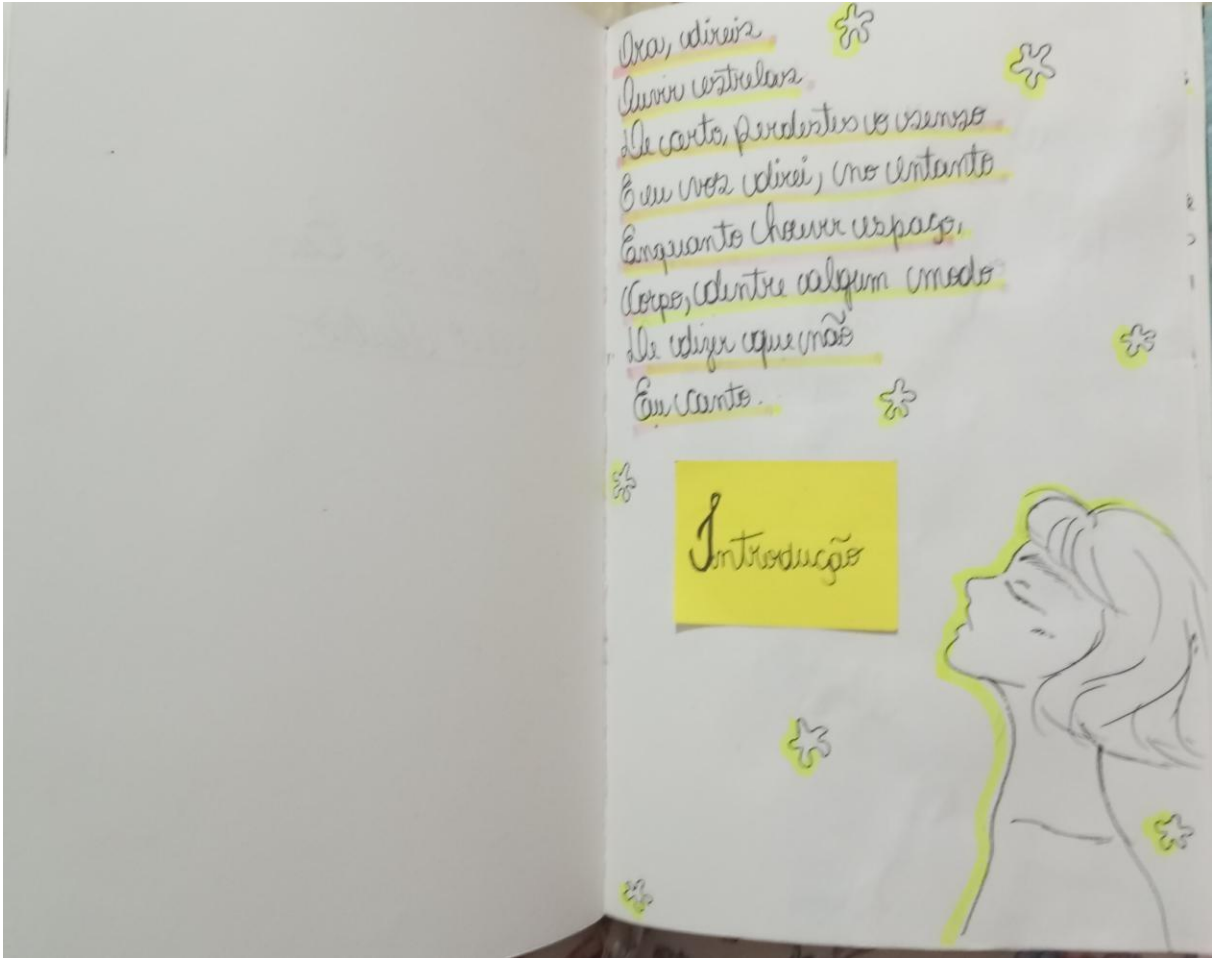 Ora, direis
Ouvir estrelas
De certo, perdestes o senso
E eu vos direi, no entanto
Enquanto houver espaço,
Corpo, dentre algum modo
De dizer que não
Eu canto.
Introdução